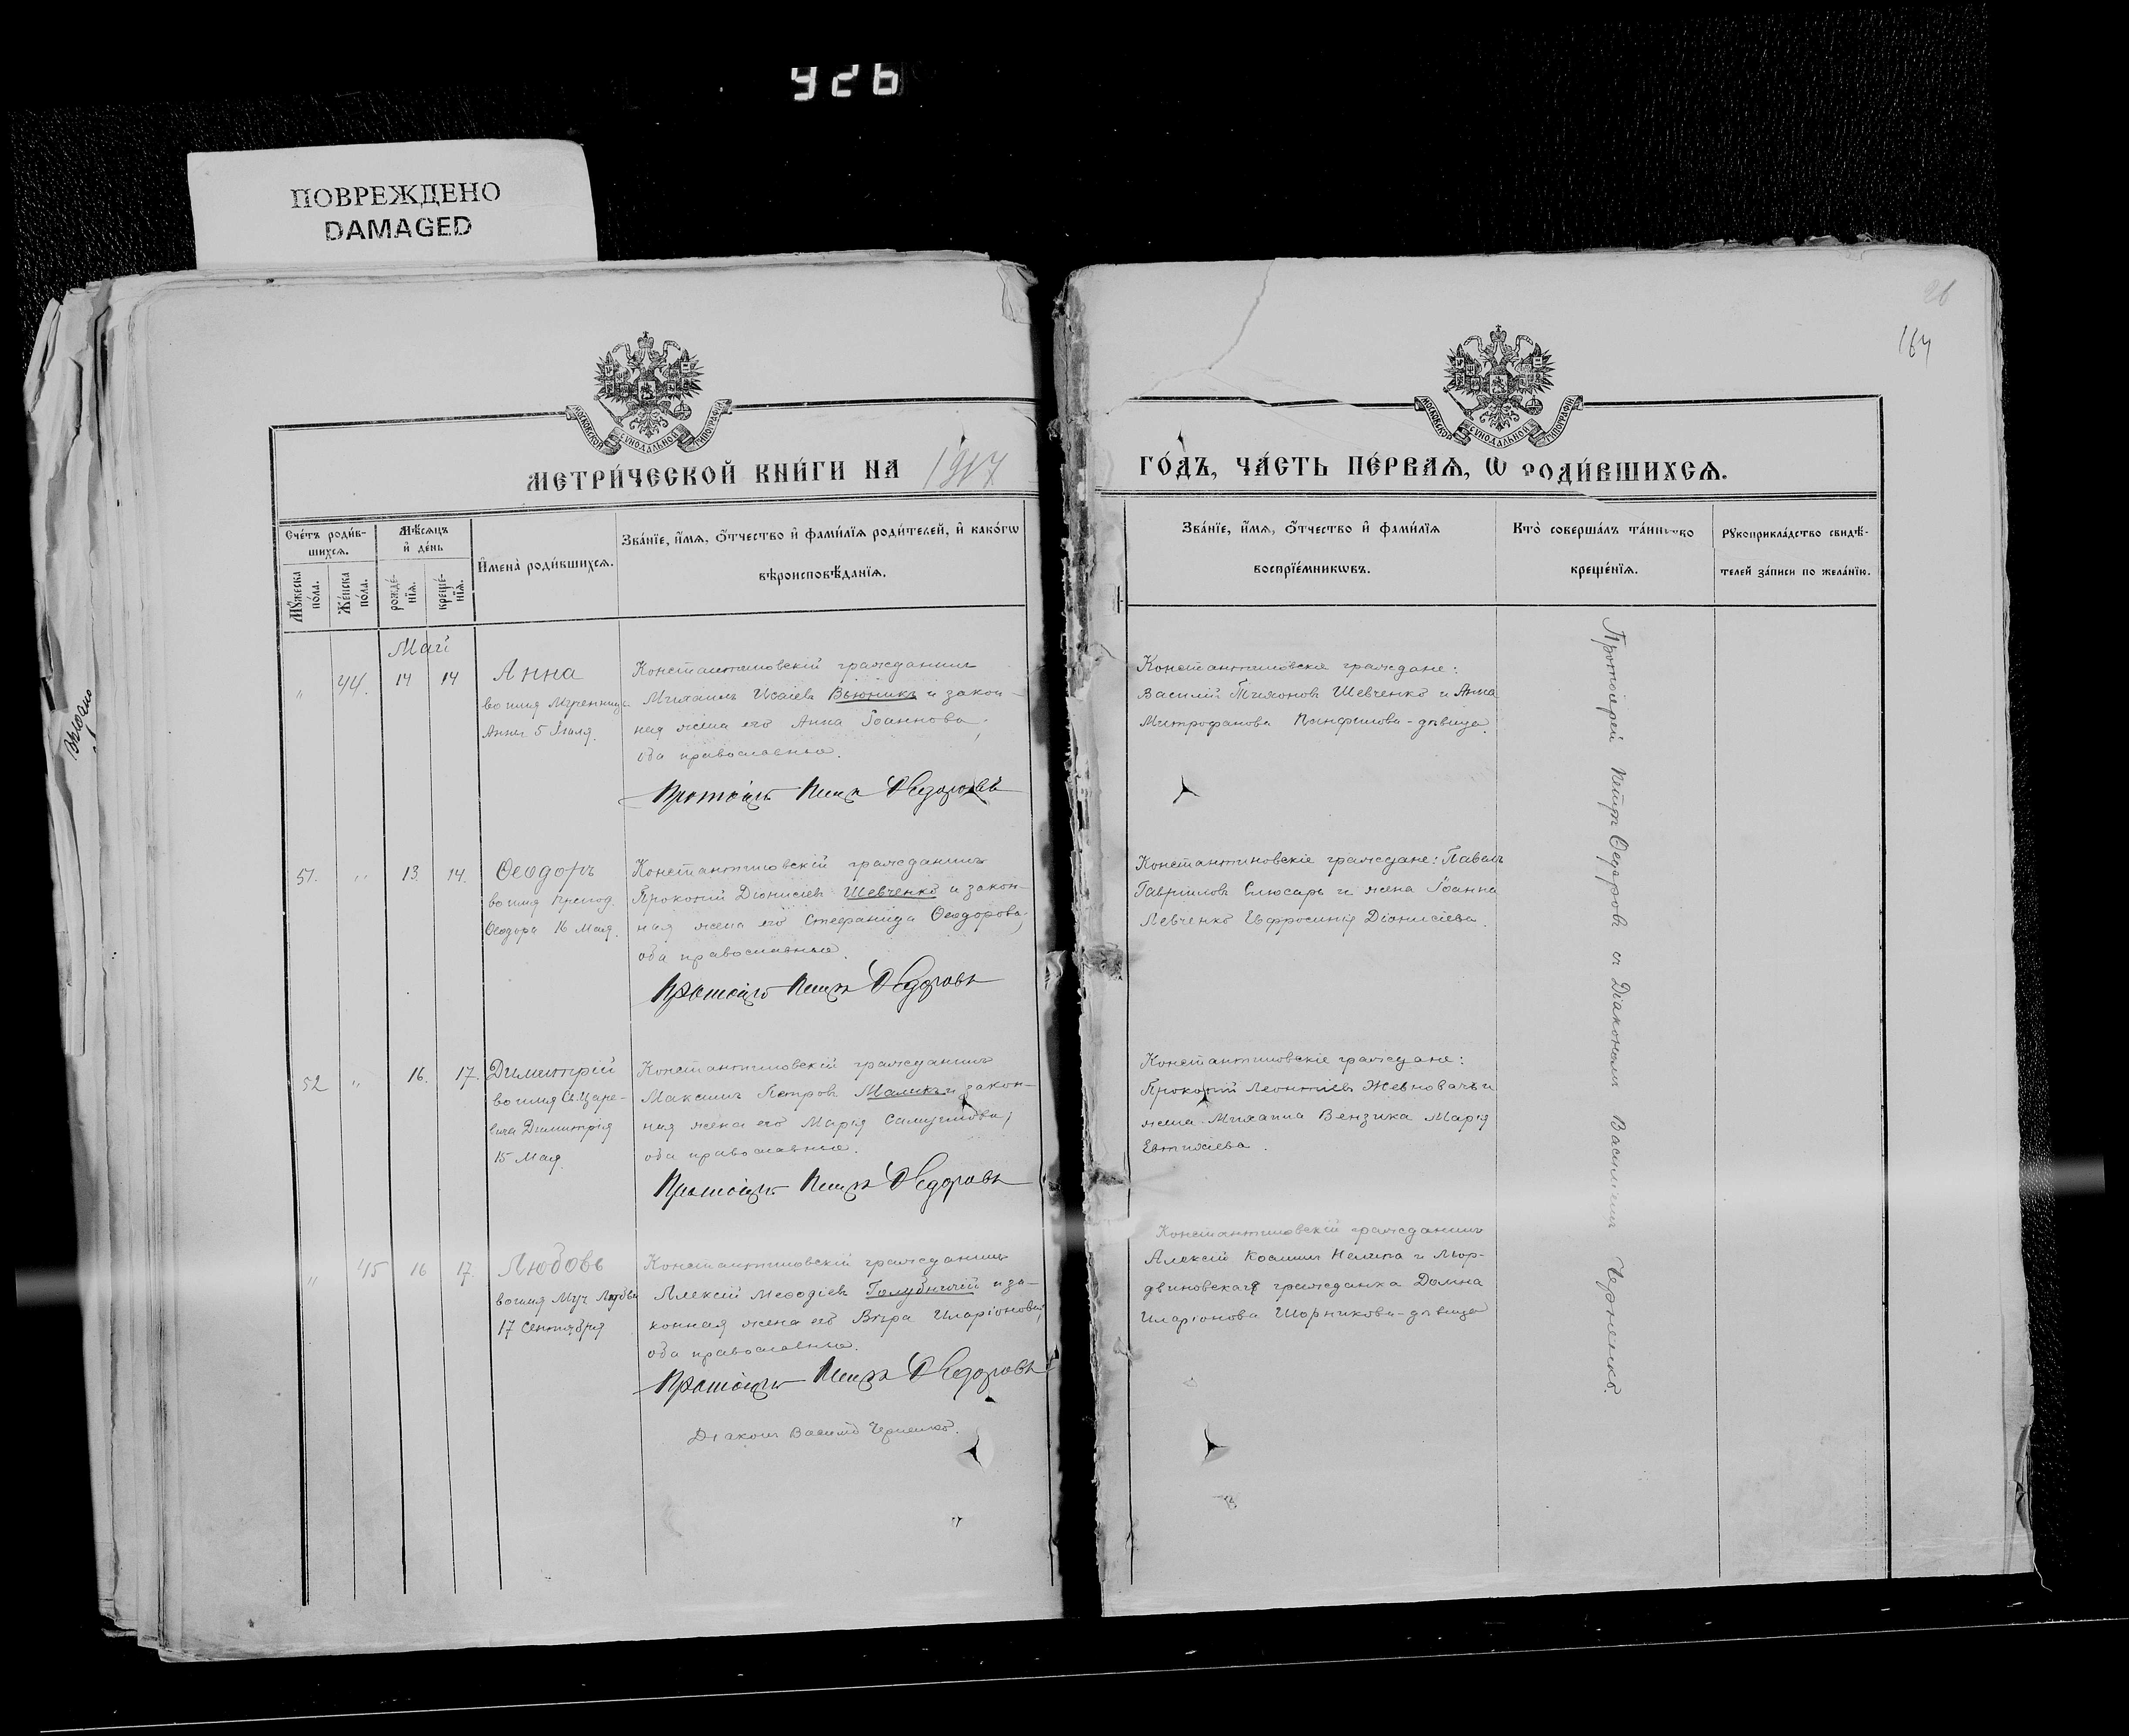 926
ПОВРЕЖДЕНО
DAMAGED
26
164
МОСКОВСКОЙ СѴНОДАЛЬНОЙ ТИПОГРАФІИ
МОСКОВСКОЙ СѴНОДАЛЬНОЙ ТИПОГРАФІИ
МЕТРИ́ЧЕСКОЙ КНИ́ГИ НА 1917
ГО́ДЪ, ЧА́СТЬ ПЕ́РВАѦ, Ѡ РОДИ́ВШИХСѦ.
Сче́тъ роди́в-
шихсѧ.
Мꙋ́жеска по́ла.
Же́нска по́ла.
Мѣ́сѧцъ
и҆ де́нь
рожде́-
нїѧ.
креще́-
нїѧ.
И҆мена̀ роди́вшихсѧ.
Зва́нїе, и҆́мѧ, ѻ҆́тчество и҆ фами́лїѧ роди́телей, и҆ како́гѡ
вѣроисповѣ́данїѧ.
Зва́нїе, и҆́мѧ, ѻ҆́тчество и҆ фами́лїѧ
воспрїе́мникѡвъ.
Кто̀ соверша́лъ та́инство
креще́нїѧ.
Рꙋкоприкла́дство свидѣ́-
телей за́писи по жела́нїю.
Май
" 44. 14 14
Анна
во имя Мученицы
Анны 5 Іюля.
Константиновскій гражданинъ
Михаилъ Исаіевъ Вьюникъ и закон-
ная жена его Анна Іоаннова;
оба православные.
Протоіерей Петръ Ѳедоровъ
Константиновскіе граждане:
Василій Тихоновъ Шевченко и Анна
Митрофанова Панфилова-дѣвица.
51. " 13. 14.
Ѳеодоръ
во имя Препод.
Ѳеодора 16 Мая.
Константиновскій гражданинъ
Прокопій Діонисіевъ Шевченко и закон-
ная жена его Стефанида Ѳеодорова;
оба православные.
Протоіерей Петръ Ѳедоровъ
Константиновскіе граждане: Павелъ
Гавриловъ Слюсарь и жена Іоанна
Левченко Евфросинія Діонисіева.
52 " 16. 17.
Димитрій
во имя Св. Царе-
вича Димитрія
15 Мая.
Константиновскій гражданинъ
Максимъ Петровъ Маликъ и закон-
ная жена его Марія Самуилова;
оба православные.
Протоіерей Петръ Ѳедоровъ
Константиновскіе граждане:
Прокопій Леонтіевъ и
жена Михаила Вензика Марія
Евтихіева.
" 45 16 17.
Любовь
во имя Муч Любви
17 Сентября
Константиновскій гражданинъ
Алексій Меѳодіевъ Голубничій и за-
конная жена его Вѣра Иларіонова;
оба православные.
Протоіерей Петръ Ѳедоровъ
Діаконъ Василій Черненко.
Константиновскій гражданинъ
Алексій Косминъ Нелипа и Мор-
двиновская гражданка Домна
Иларіонова Шорникова-дѣвица
Протоіерей Петръ Ѳедоровъ съ Діакономъ Василіемъ Черненко.